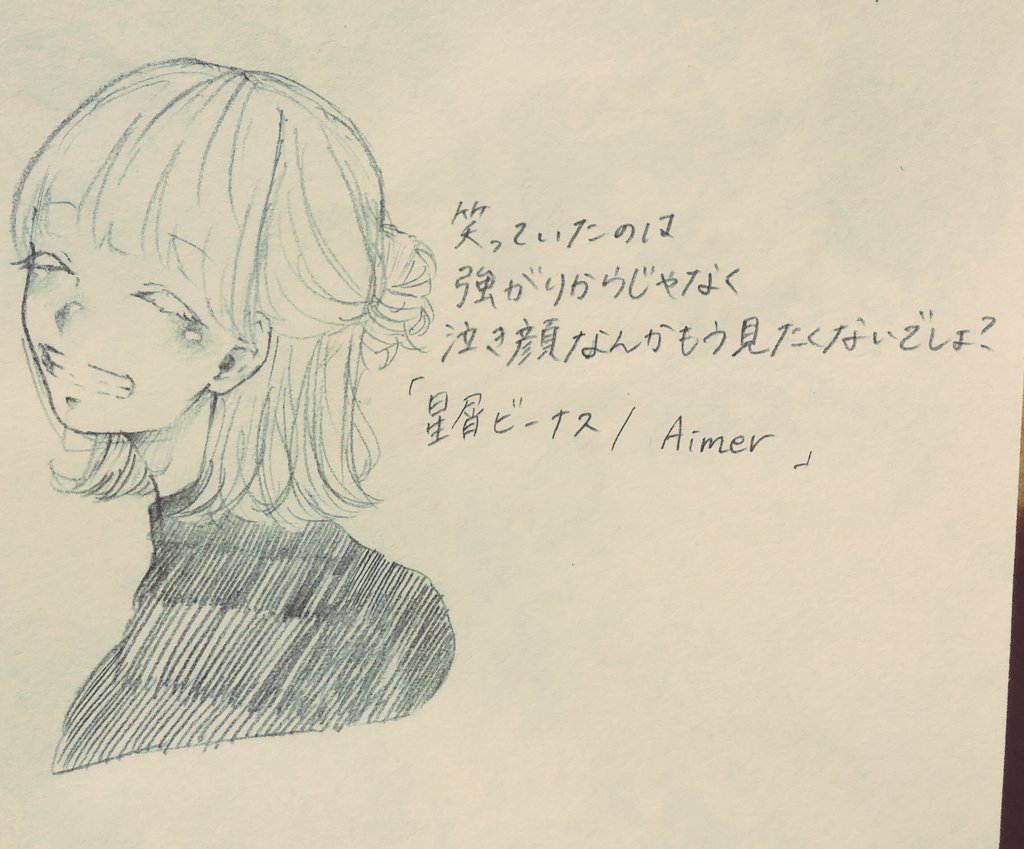 笑っていたのは
強がりからじゃなく
泣き顔なんかもう見たくないでしょ?
「星屑ビーナス / Aimer 」